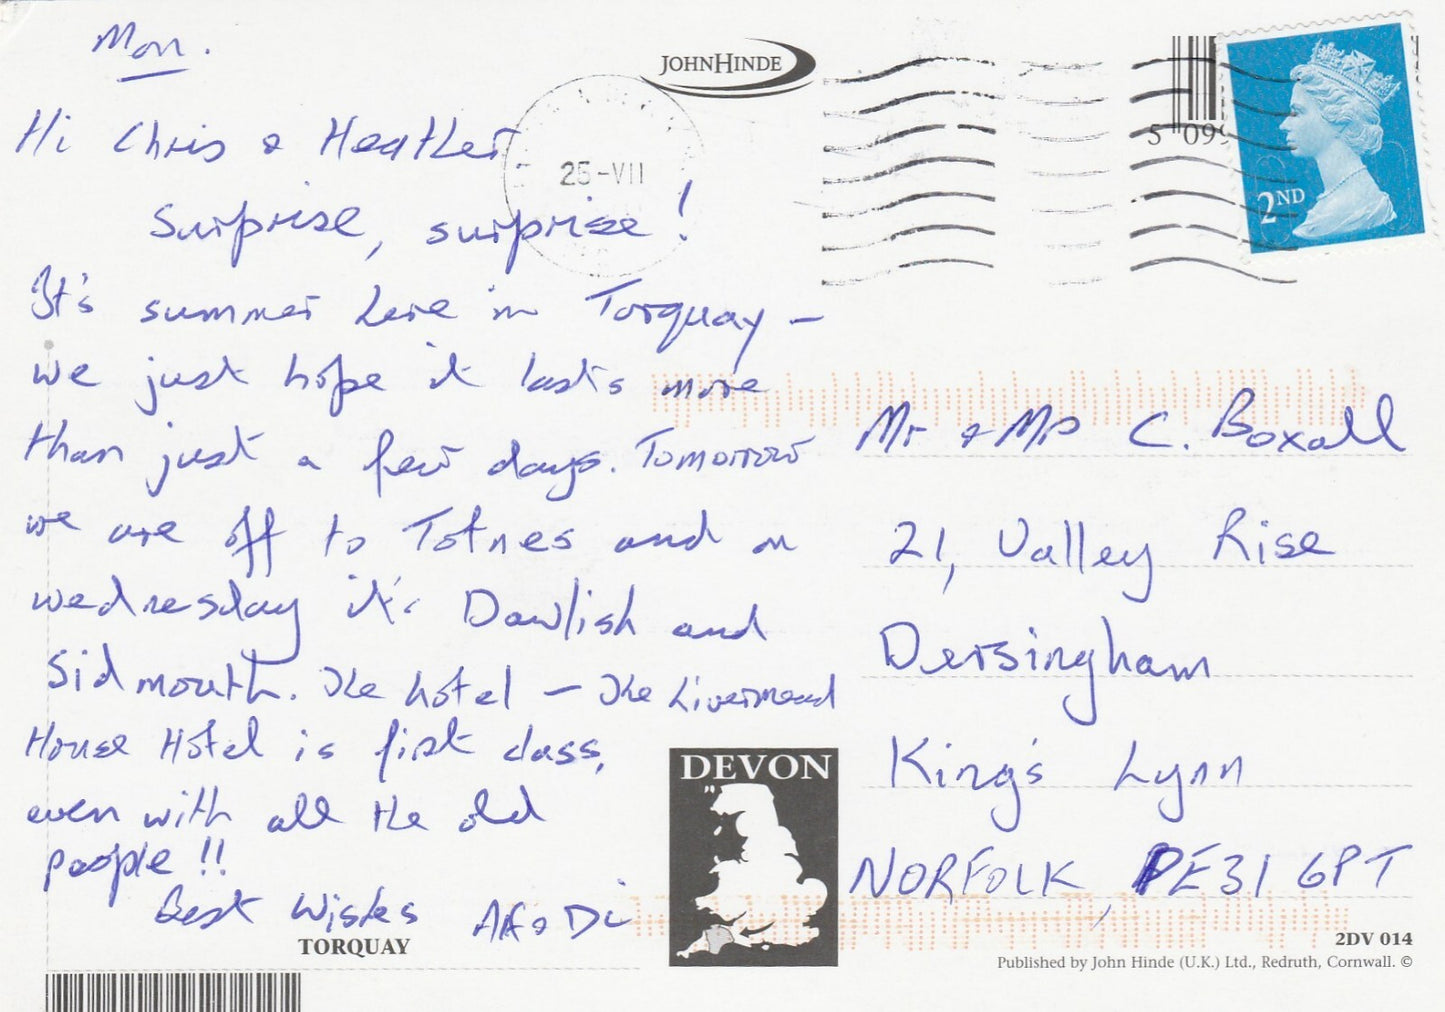 Mon.
JOHN HINDE
Hi Chris & Heather
25-VII
Surprise, surprise!
It's summer here in Torquay –
we just hope it lasts more
than just a few days. Tomorrow
we are off to Totnes and on
wednesday it's Dawlish and
Sidmouth. The hotel – The Livermead
House Hotel is first class,
even with all the old
people!!
Best Wishes Alf & Di
TORQUAY
DEVON
5 099
2ND
Mr & Mrs C. Boxall
21, Valley Rise
Dersingham
King's Lynn
NORFOLK, PE31 6PT
2DV 014
Published by John Hinde (U.K.) Ltd., Redruth, Cornwall. ©